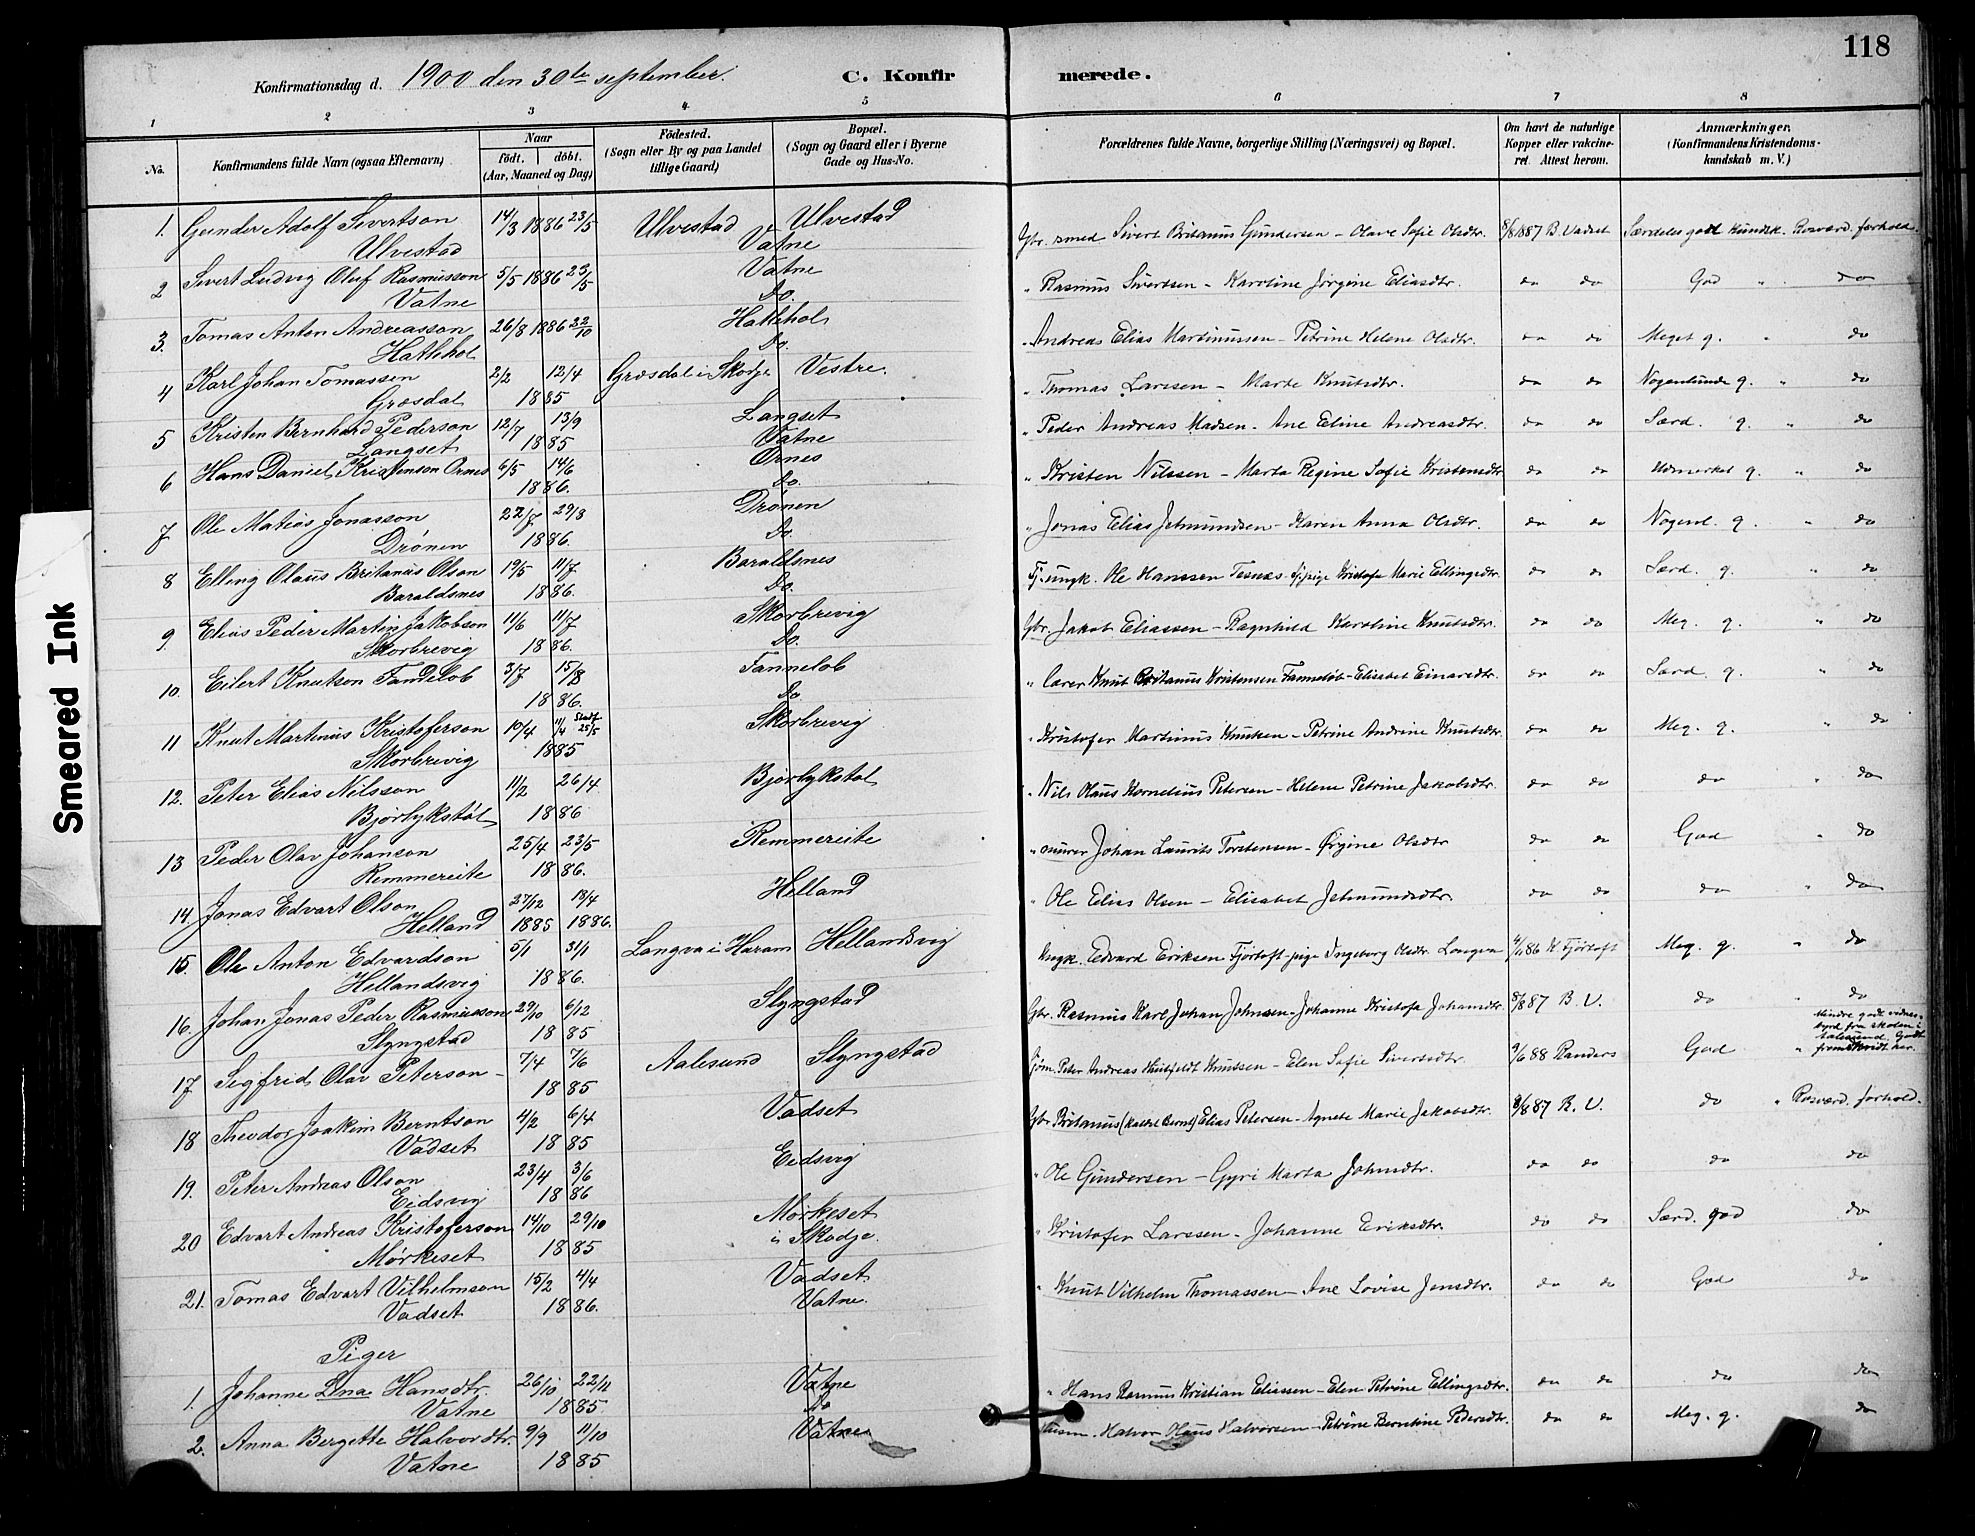 118
Konfirmationsdag d. 1900 den 30te september. C. Konfirmerede.
1 2 3 4 5 6 7 8
No. Konfirmandens fulde Navn (ogsaa Efternavn) Naar født. døbt. (Aar, Maaned og Dag) Fødested. (Sogn eller By og paa Landet tillige Gaard) Bopæl. (Sogn og Gaard eller i Byerne Gade og Hus-No. Forældrenes fulde Navne, borgerlige Stilling (Næringsvei) og Bopæl. Om havt de naturlige Kopper eller vakcineret. Attest herom. Anmærkninger. (Konfirmandens Kristendomskundskab m. V.)
1. Gunder Adolf Sivertson 14/3 1886 23/5 Ulvestad Ulvestad Gbr. smed Sivert Britanus Gundersen - Olave Sofie Olsdtr. 8/8 1887 B. Vadset Særdeles godt Kundsk. Rosværd. forhold.
Ulvestad Vatne
2 Sivert Ludvig Oluf Rasmusson 5/5 1886 23/5 Vatne " Rasmus Sivertsen - Karoline Jørgine Eliasdtr. do do God " do
Vatne Do.
3. Tomas Anton Andreasson 26/8 1886 22/10 Hatlehol " Andreas Elias Martinussen - Petrine Helene Olsdtr. do do Meget g. " do
Hatlehol Do.
4 Karl Johan Tomassen 2/2 12/4 Græsdal i Skodje Vestre. " Thomas Larsen - Marte Knutsdtr. do do Nogenlunde g. " do
Græsdal 1885
5 Kristen Bernhard Pederson 12/7 13/9 Langset " Peder Andreas Madsen - Ane Eline Andreasdtr. do do Særd. g. " do
Langset 1885 Vatne
6 Hans Daniel Kristenson Ornes 6/5 14/6 Ornes " Kristen Nilssen - Marta Regine Sofie Kristensdtr do do Udmerket g. " do
1886. Do.
7 Ole Matias Jonasson 22/7 29/8 Drønen " Jonas Elias Jetmundsen - Karen Anna Olsdtr. do do Nogenl. g. " do
Drønen 1886. Do.
8 Elling Olaus Britanus Olson 19/5 11/7 Baraldsnes Tj. ungk. Ole Hanssen Tennes - pige Kristofa Marie Ellingsdtr. do do Særd. g. " do
Baraldsnes 1886. Do.
9. Elias Peder Martin Jakobson 11/6 11/7 Skorbrevig Gbr. Jakob Eliassen - Ragnhild Karoline Knutsdtr. do do Meg. g. " do
Skorbrevig 1886. Do.
10. Eilert Knutson Fandeløb 3/7 15/8 Fanneløb " Lærer Knut Britanus Kristensen Fanneløb - Elisabet Einarsdtr. do do Særd. g. " do
1886. Do
11 Knut Martinus Kristoferson 10/4 11/4 Stadf. 25/5 Skorbrevig " Kristofer Martinus Knutsen - Petrine Andrine Knutsdtr. do do Meg. g. " do
Skorbrevig 1885
12. Peter Elias Nilsson 11/2 26/4 Bjørlykstøl " Nils Olaus Kornelius Petersen - Helene Petrine Jakobsdtr. do do do " do
Bjørlykstøl 1886
13 Peder Olav Johanson 25/4 23/5 Remmereite " murer Johan Laurits Torstensen - Ørgine Olsdtr do do God " do
Remmereite 1886.
14. Jonas Edvart Olson 27/12 18/4 Helland " Ole Elias Olsen - Elisabet Jetmundsdtr. do do do " do
Helland 1885 1886.
15. Ole Anton Edvardson 5/1 31/1 Longva i Haram Hellandsvig Ungk. Edvard Eriksen Fjørtoft - pige Ingeborg Olsdtr. Longva 4/11 86 K. Fjørtoft Meg. g. " do
Hellandsvig 1886.
16. Johan Jonas Peder Rasmusson 29/10 6/12 Slyngstad Gbr. Rasmus Karl Johan Johnsen - Johanne Kristofa Johansdtr. 8/8 87 B. V. do " do
Slyngstad 1885
17 Sigfrid Olav Peterson - 7/4 7/6 Aalesund Slyngstad Peter Andreas Huitfeldt Knutsen - Elen Sofie Sivertsdtr. 9/6 88 Randers God " Mindre godt vidnesbyrd fra skolen i Aalesund. Godt fremskridt her.
1885
18 Theodor Joakim Berntson 4/2 6/4 Vadset Gbr Britanus (kaldet Bernt) Elias Petersen - Agnete Marie Jakobsdtr. 8/8 87 B. V. do " Rosværd. forhold.
Vadset 1885
19. Peter Andreas Olson 23/4 3/6 Eidsvig " Ole Gundersen - Gyri Marta Johnsdtr. do do do do
Eidsvig 1886
20 Edvart Andreas Kristoferson 14/10 29/10 Mørkeset " Kristofer Larssen - Johanne Eriksdtr. do do Særd. god do
Mørkeset 1885 i Skodje.
21. Tomas Edvart Vilhelmson 15/2 4/4 Vadset " Knut Vilhelm Thomassen - Ane Lovise Jensdtr. do do God do
Vadset 1886. Vatne.
Piger
1. Johanne Lina Hansdtr. 26/10 22/11 Vatne " Hans Rasmus Kristian Eliassen - Elen Petrine Ellingsdtr. do do do do
Vatne 1885 Do
2. Anna Bergette Halvordtr. 9/9 11/10 Vatne Husm. Halvor Olaus Halvorsen - Petrine Berntine Pedersdtr. do do Meg. g. do
Vatne 1885
Smeared Ink